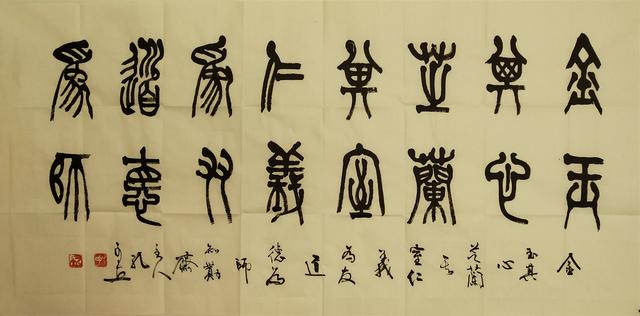 金玉
其心
芝蘭
其室
仁義
為友
道悳
為師
金
玉其
心
芝蘭
其
室仁
義
為友
道
德為
師
知勤
齋
主人
孔